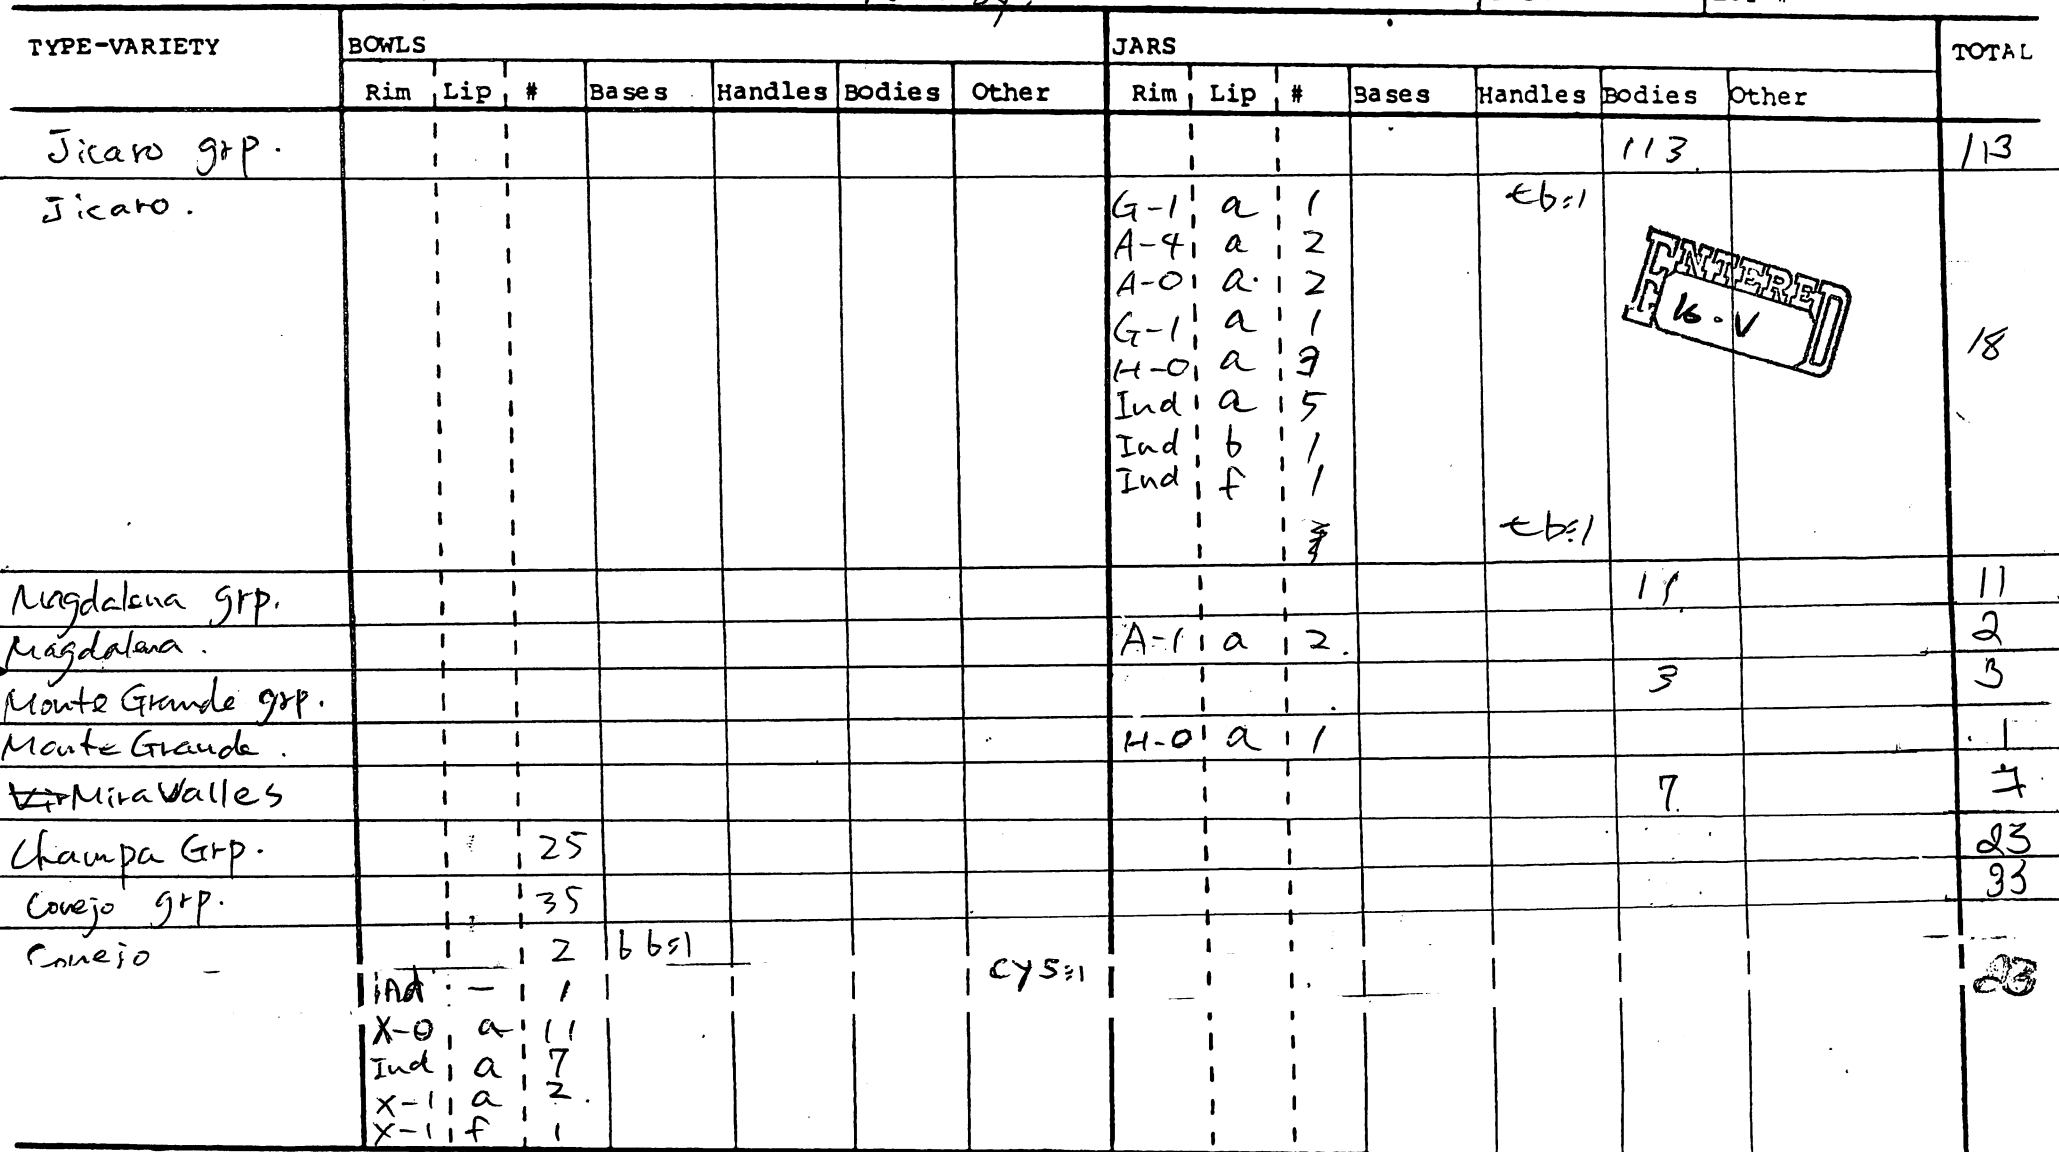 TYPE-VARIETY BOWLS JARS TOTAL
Rim Lip # Bases Handles Bodies Other Rim Lip # Bases Handles Bodies Other
Jicaro grp. 113 113
Jicaro. G-1 a 1 tb=1
A-4 a 2
A-0 a 2
ENTERED
16.V
G-1 a 1
H-0 a 3 18
Ind a 5
Ind b 1
Ind f 1
tb=1
Magdalena grp. 11 11
Magdalena. A-1 a 2. 2
Monte Grande grp. 3 3
Monte Grande. H-0 a 1 1
MiraValles 7 7
Champa Grp. 25 23
Conejo grp. 35 33
Conejo 2 bb=1
cys=1
ind - 1 23
X-0 a 11
Ind a 7
X-1 a 2.
X-1 f 1